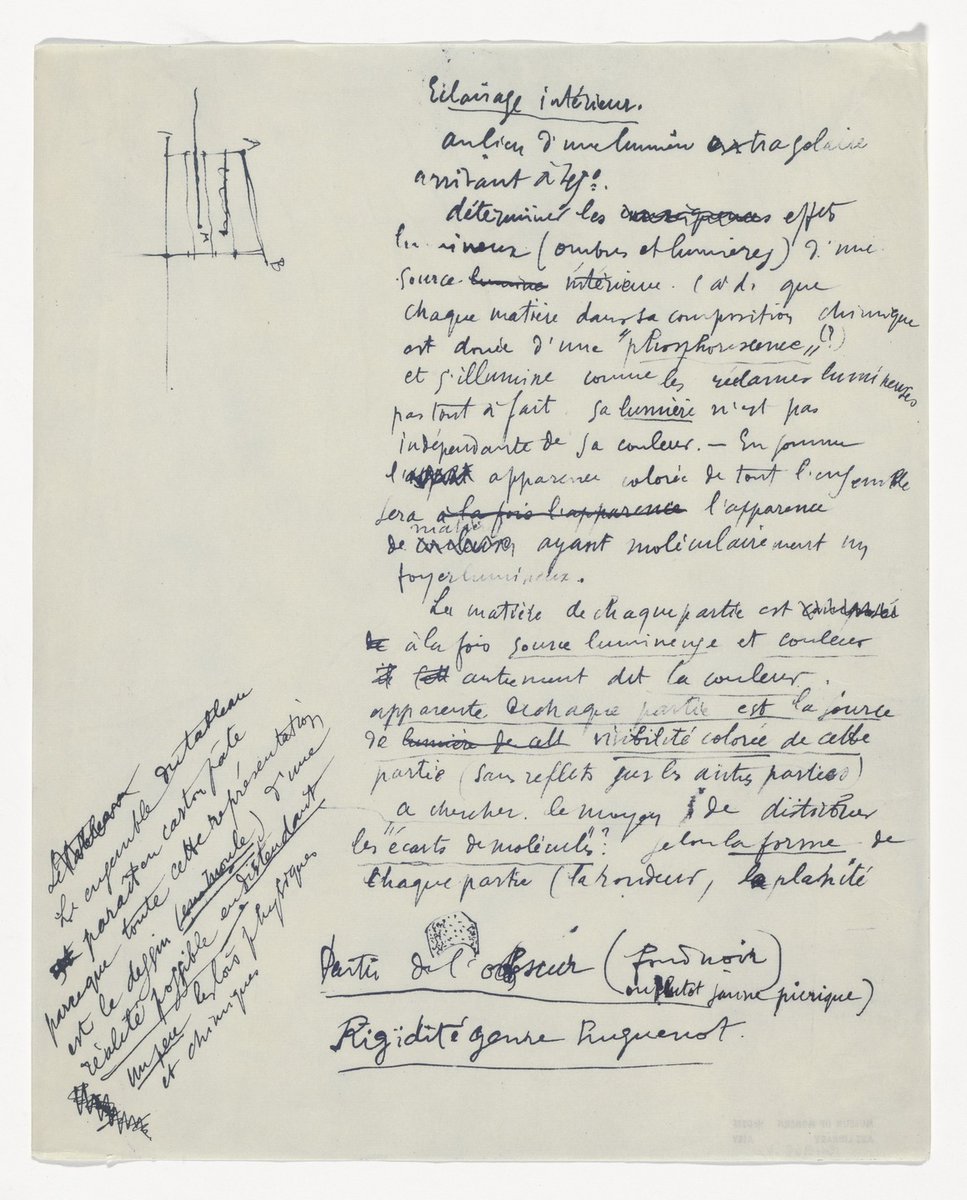 Eclairage intérieur.
au lieu d'une lumière extra solaire
arrivant à
déterminer les effets
lumineux (ombres et lumières) d'une
source lumine intérieure. (càd. que
chaque matière dans sa composition chimique
est douée d'une "phosphorescence" (?)
et s'illumine comme les réclames lumineuses
pas tout à fait sa lumière n'est pas
indépendante de sa couleur. — En somme
l' apparence colorée de tout l'ensemble
sera à la fois l'apparence l'apparence
de matière ayant moléculairement un
foyer lumineux.
La matière de chaque partie est
à la fois source lumineuse et couleur
autrement dit la couleur
apparente de chaque partie est la source
de lumière de cett visibilité colorée de cette
partie (sans reflets sur les autres parties)
à chercher. le moyen de distribuer
les "écarts de molécules"? selon la forme de
chaque partie (la rondeur, la planité
Partir de l'obscur (fond noir
ou plutot jaune picrique)
Rigidité genre Huguenot.
A
B
Le tableau
Le ensemble du tableau
paraît en carton pâte
parce que toute cette représentation
est le dessin (un moule) d'une
réalité possible en distendant
un peu les lois physiques
et chimiques